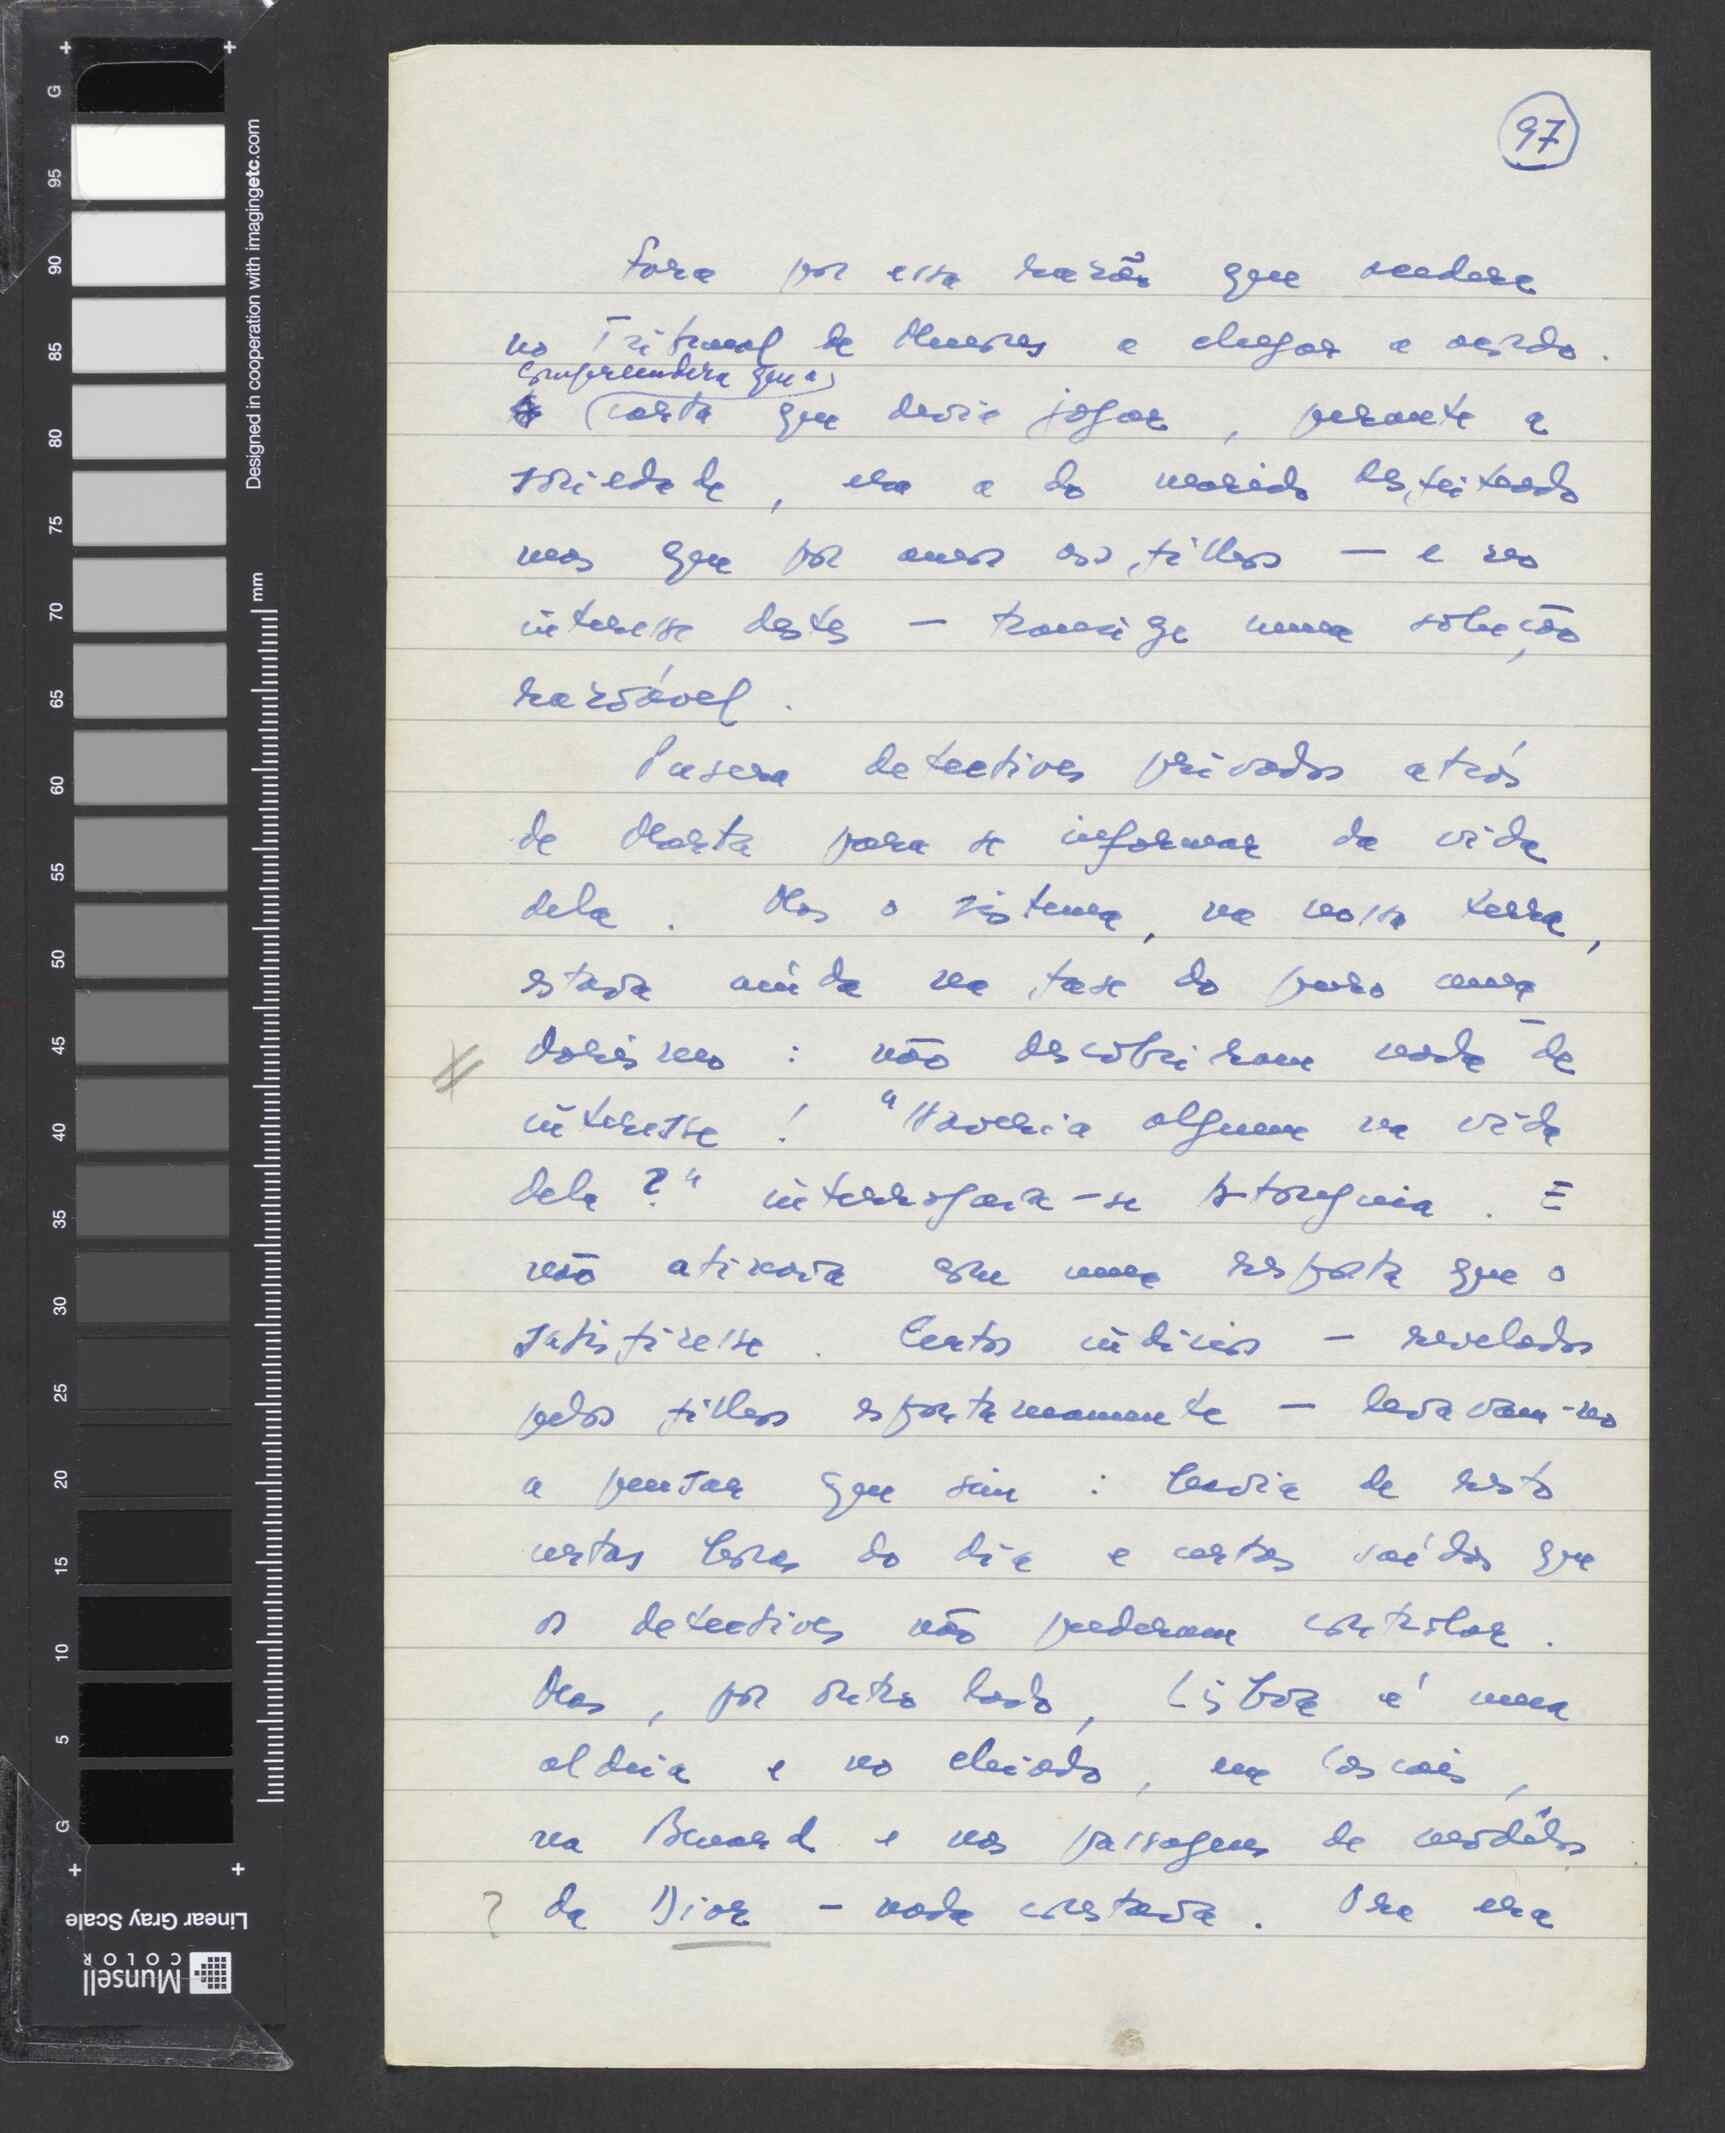 97
Fora por essa razão que acedera
no Tribunal de Menores a chegar a acordo.
Compreendera que a
carta que devia jogar, perante a
sociedade, era a do marido desfeiteado
mas que por amor aos filhos — e no
interesse destes — transige numa solução
razoável.
Pusera detectives privados atrás
de Marta para se informar da vida
dela. Mas o sistema, na nossa terra,
estava ainda na fase do puro ama-
dorismo: não descobriram nada de
interesse! "Haveria alguem na vida
dela?" interrogava-se Astorguia. E
não atinava com uma resposta que o
satisfizesse. Certos indícios — revelados
pelos filhos espontaneamente — levavam-no
a pensar que sim: havia de resto
certas horas do dia e certas saídas que
os detectives não puderam controlar.
Mas, por outro lado, Lisboa é uma
aldeia e no Chiado, em Cascais,
na Benard e nas passagens de modêlos
? da Dior — nada constava. Ora era
Designed in cooperation with imagingetc.com
mm
G
95
90
85
80
75
70
65
60
55
50
45
40
35
30
25
20
15
10
5
G
Linear Gray Scale
Munsell
COLOR